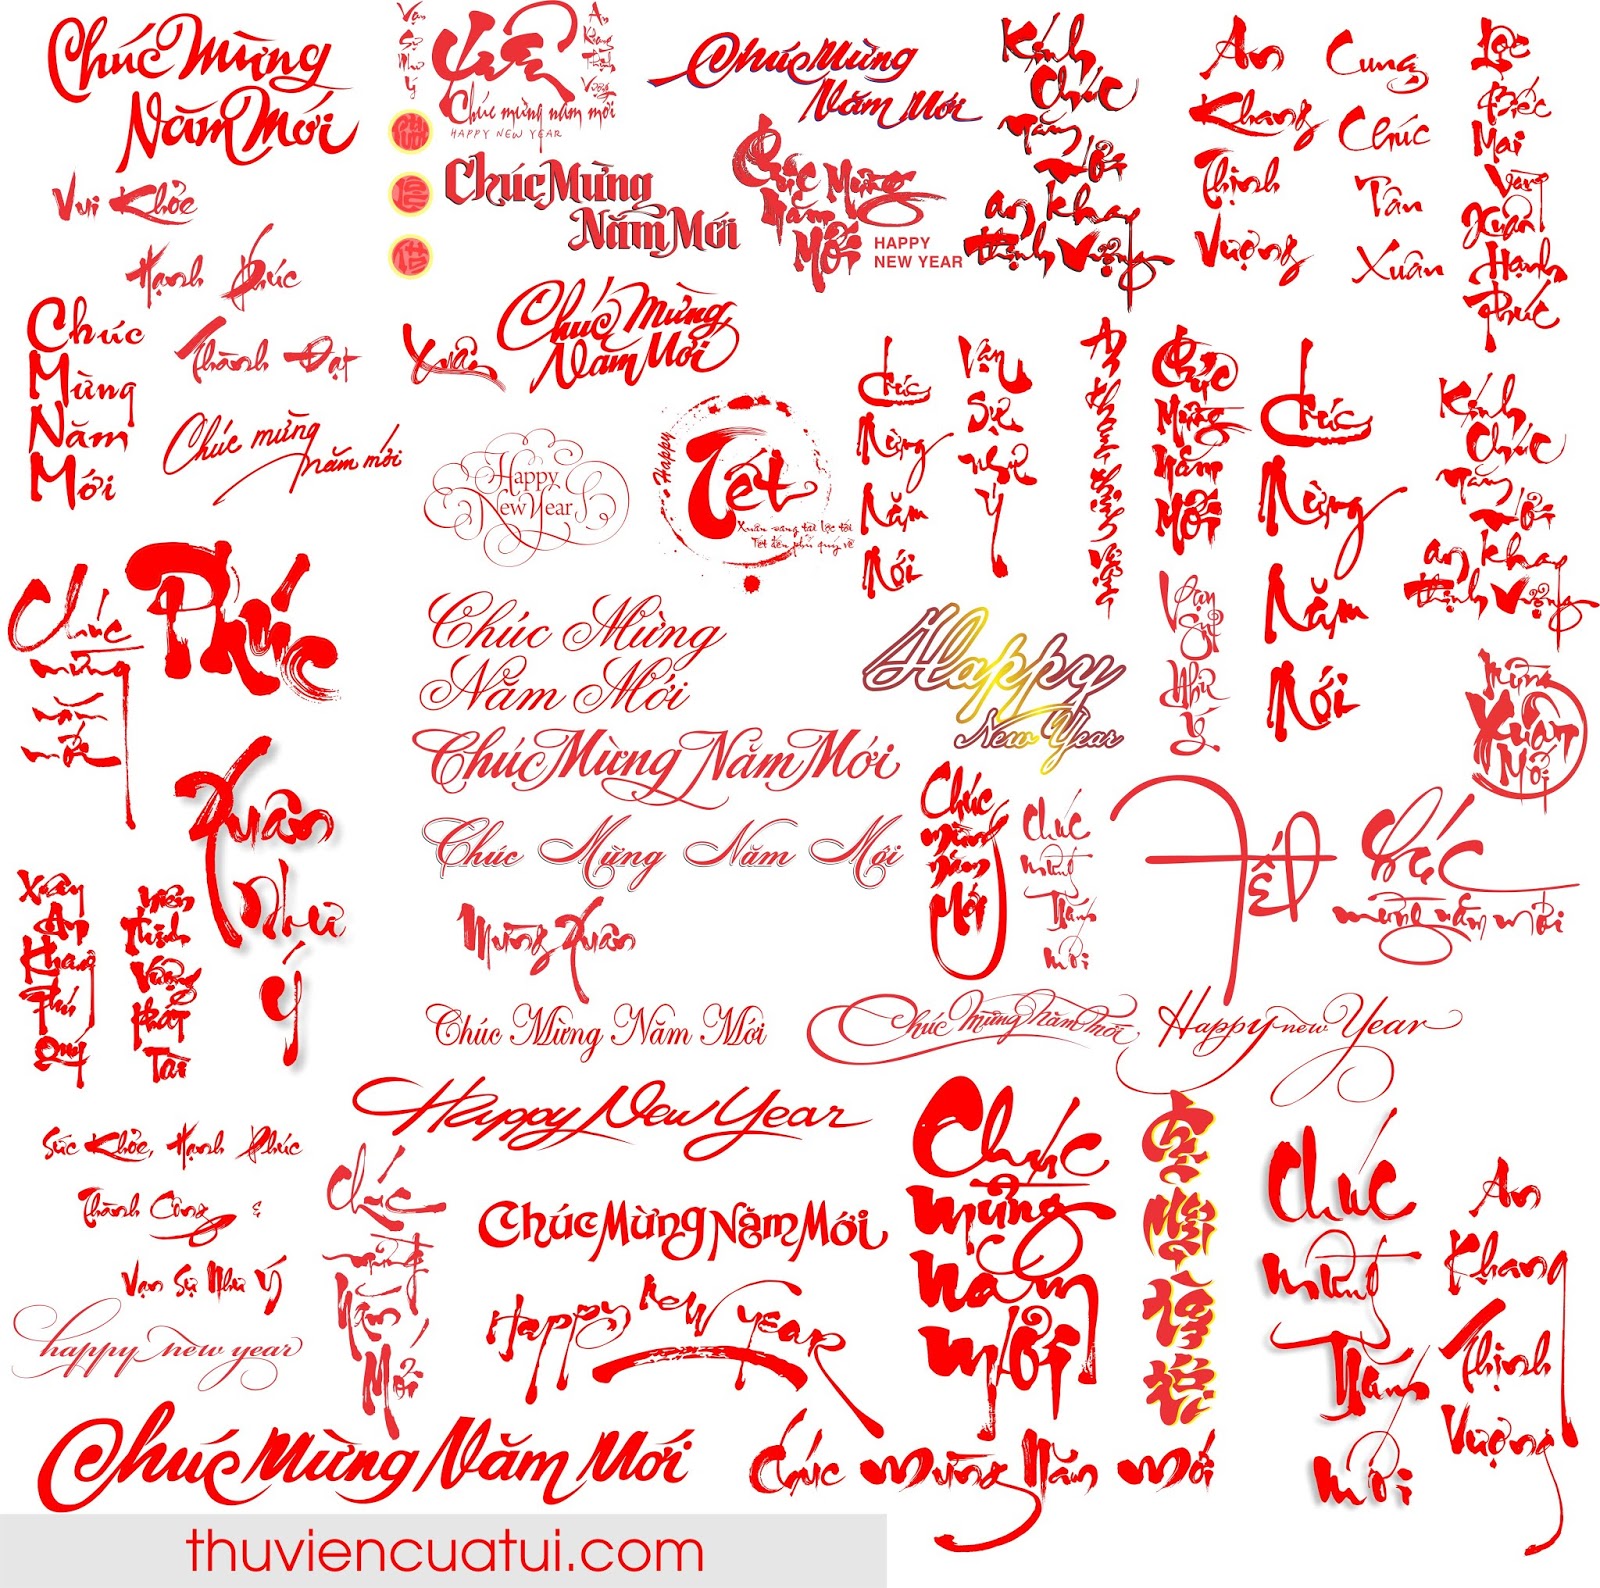 Chúc Mừng
Năm Mới
Vạn
Sự
Như
Ý
Xuân
Chúc mừng năm mới
HAPPY NEW YEAR
An
Khang
Thịnh
Vượng
Chúc Mừng
Năm Mới
Kính
Chúc
Tân
Mới
an khang
thịnh Vượng
An
Khang
Thịnh
Vượng
Cung
Chúc
Tân
Xuân
Lộc
Biếc
Mai
Vàng
Xuân
Hạnh
Phúc
Vui Khỏe
Hạnh Phúc
Chúc Mừng
Năm Mới
Chúc Mừng
Năm
Mới
HAPPY
NEW YEAR
Chúc
Mừng
Năm
Mới
Thành Đạt
Chúc mừng
năm mới
Xuân
Chúc Mừng
Năm Mới
Happy
New Year
Happy
Tết
Xuân sang tài lộc tới
Tết đến phú quý về
Chúc
Mừng
Năm
Mới
Vạn
Sự
Như
Ý
An
Khang
Thịnh
Vượng
Chúc
Mừng
Năm
Mới
Chúc
Mừng
Năm
Mới
Kính
Chúc
Tân
Mới
an khang
thịnh Vượng
Chúc
mừng
năm
mới
Phúc
Chúc Mừng
Năm Mới
Happy
New Year
Vạn
Sự
Như
Ý
Mừng
Xuân
Mới
Chúc Mừng Năm Mới
Xuân
Như
Ý
Chúc Mừng Năm Mới
Chúc
mừng
năm
Mới
Chúc
mừng
Năm
mới
Tết
Chúc
mừng năm mới
Xuân
An
Khang
Phú
Quý
Niên
Thịnh
Vượng
Phát
Tài
Mừng Xuân
Chúc Mừng Năm Mới
Chúc Mừng Năm Mới
Happy new Year
Happy New Year
Sức Khỏe, Hạnh Phúc
Thành Công &
Vạn Sự Như Ý
Chúc
mừng
Năm
Mới
Chúc Mừng Năm Mới
Happy New Year
Chúc
mừng
năm
mới
Chúc
mừng
Năm
mới
An
Khang
Thịnh
Vượng
happy new year
Chúc Mừng Năm Mới
Chúc mừng Năm mới
thuviencuatui.com